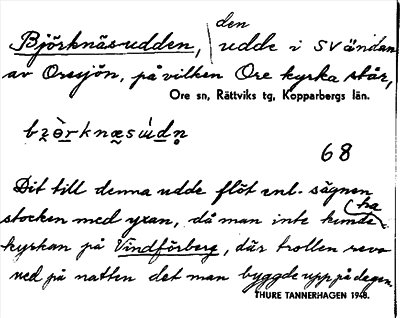 Björknäsudden, | den udde i SV ändan
av Oresjön, på vilken Ore kyrka står,
Ore sn, Rättviks tg, Kopparbergs län.
68
Dit till denna udde flöt enl. sägnen
stocken med yxan, då man inte kunde ha
kyrkan på Vindförberg, där trollen revo
ned på natten det man byggde upp på dagen.
THURE TANNERHAGEN 1948.